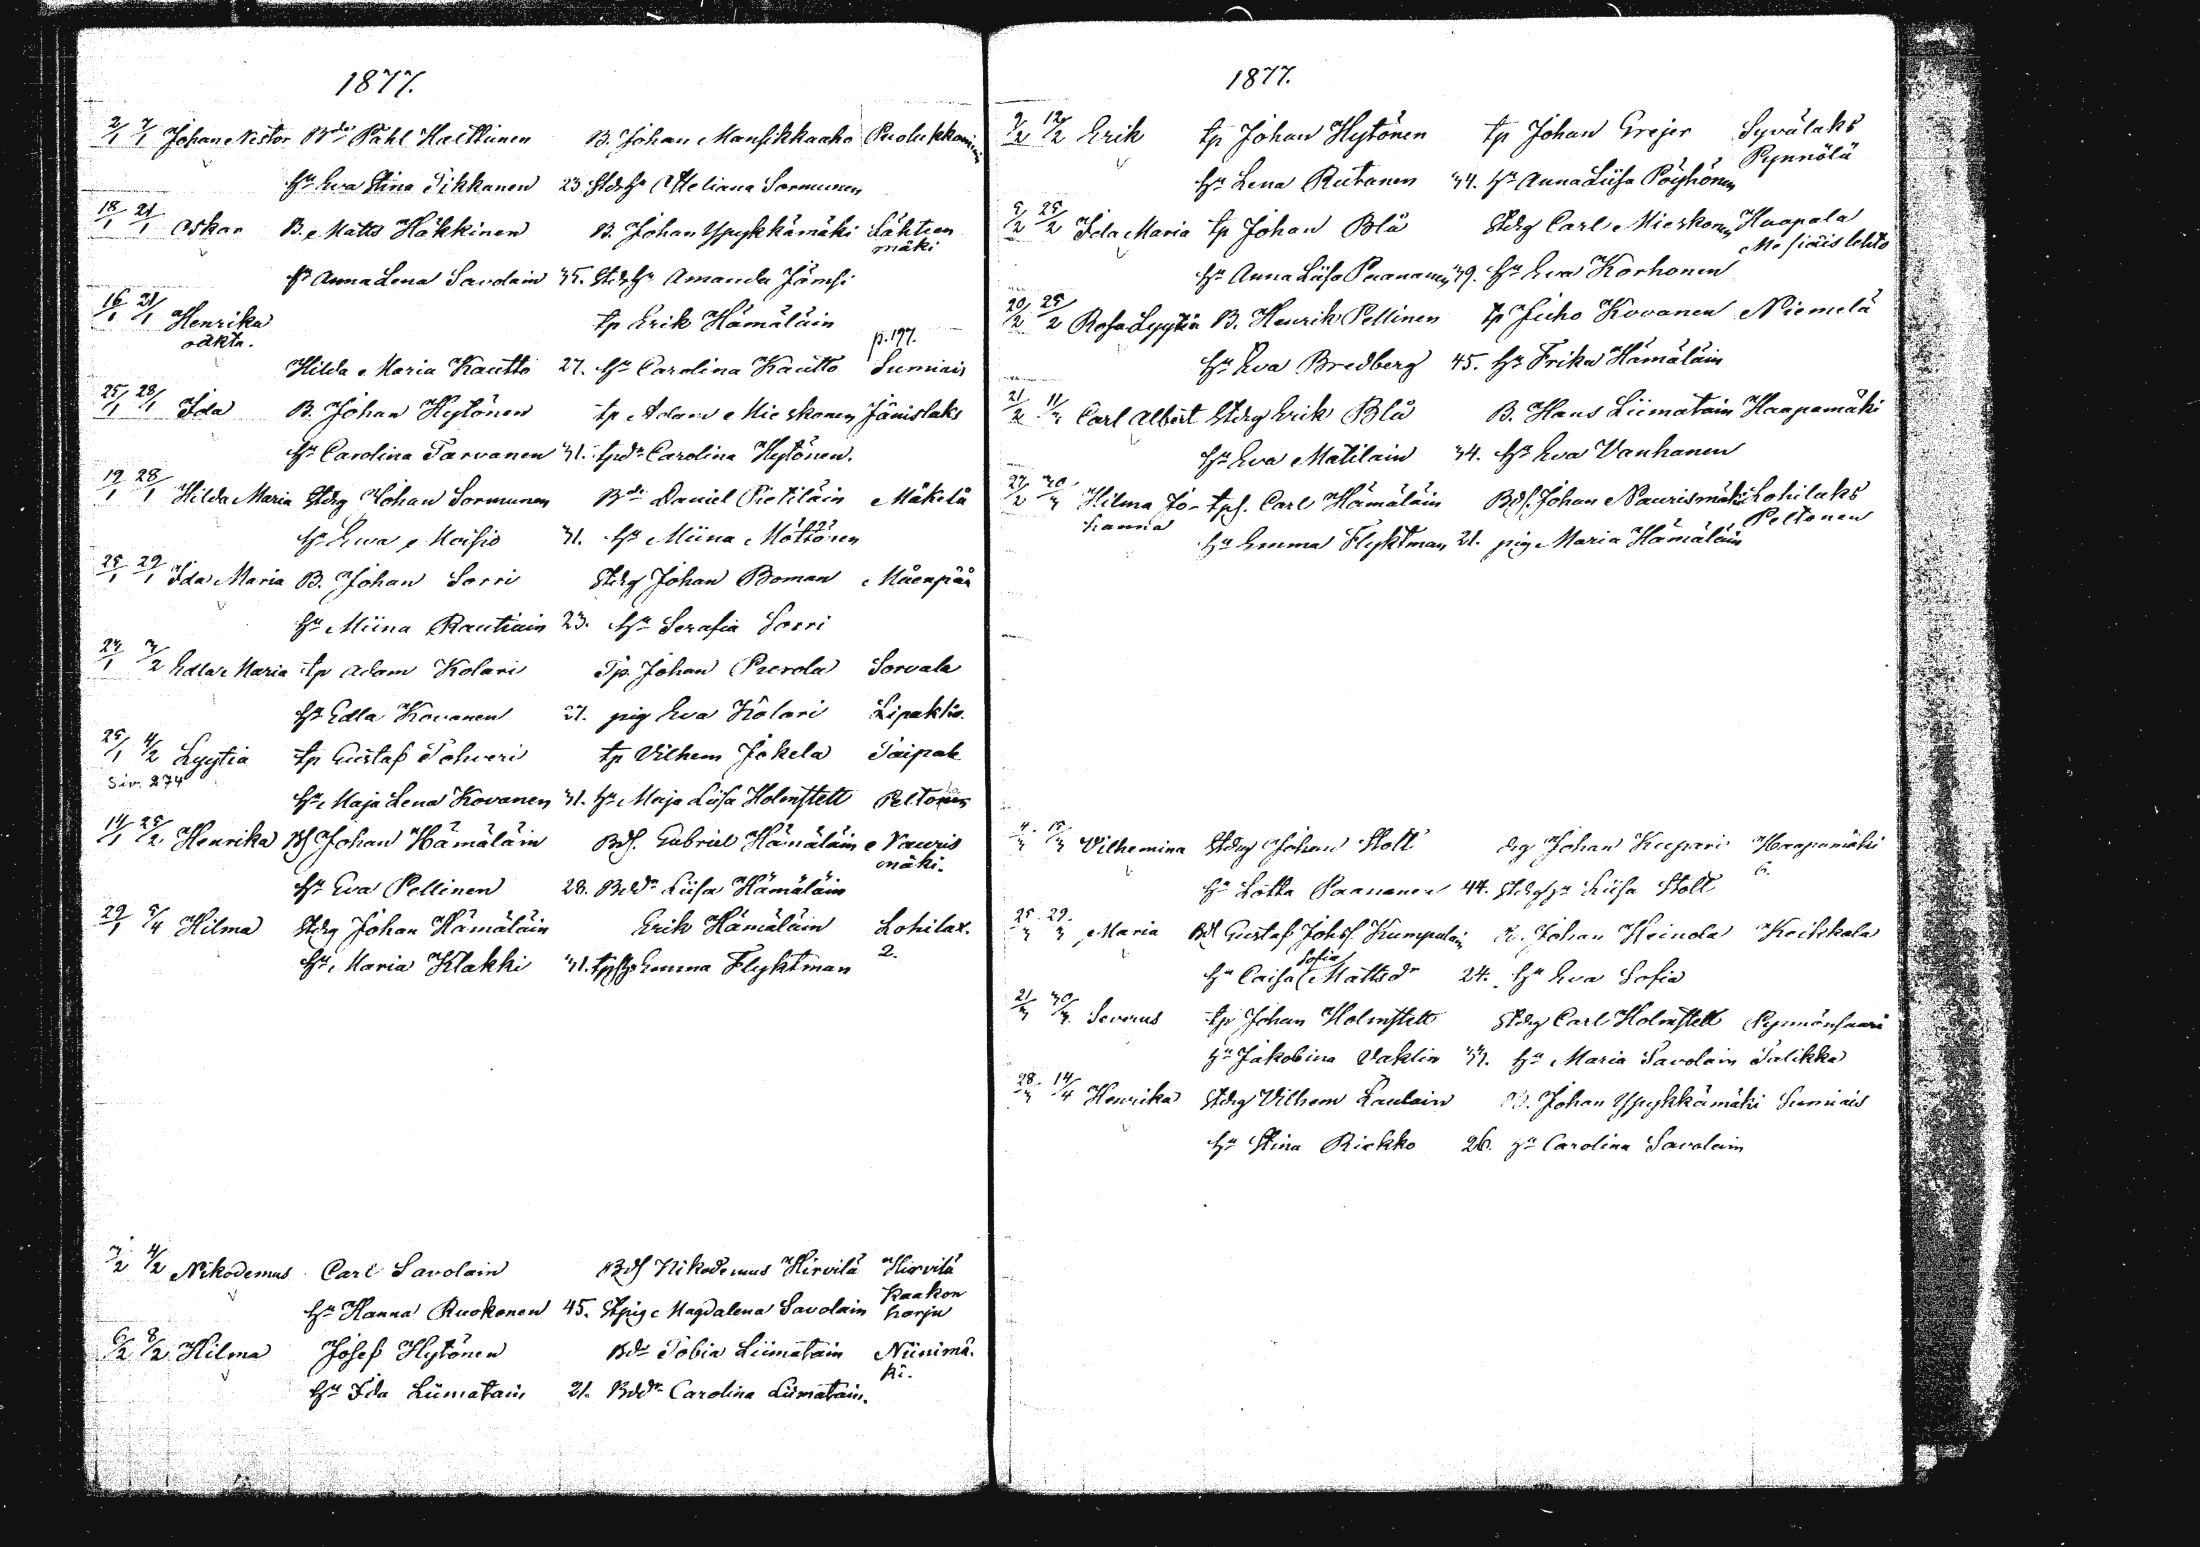 1877.
2/1 7/1 Johan Nestor Bdr Påhl Halttunen B. Johan Mansikkaaho Puolukkoniemi
Hu Eva Stina Tikkanen 23. Stdr Hu Meliana Sormunen
18/1 21/1 Oskar B. Matts Häkkinen B. Johan Ypykkämäki Lähteen
mäki
Hu Anna Lena Savolain 35. Stdr Hu Amanda Jämsi
16/1 21/1 Henrika tp Erik Hämäläin
oäkta. p. 197.
Hilda Maria Kautto 27. Hu Carolina Kautto Sumiais
25/1 28/1 Ida B. Johan Hytönen tp Adam Mieskonen Jänislaks
Hu Carolina Tarvanen 31. tpdr Carolina Hytönen.
19/1 28/1 Hilda Maria Stdrg Johan Sormunen Bdr Daniel Pietiläin Mäkelä
Hu Eva Moisio 31. Hu Miina Möttönen
25/1 29/1 Ida Maria B. Johan Sorri Stdrg Johan Boman Mäenpää
Hu Miina Rautiain 23. Hu Serafia Sorri
27/1 3/2 Edla Maria tp Adam Kolari Tp. Johan Purola Sorvala
Hu Edla Kovanen 27. pig Eva Kolari Lipaktis
25/1 4/2 Lyytia tp Gustaf Tohveri tp Vilhem Jokela Taipale
Siv. 274
Hu Maja Lena Kovanen 31. Hu Maja Liisa Holmstett Peltonen
14/1 25/2 Henrika Bdf Johan Hämäläin Bdf. Gabriel Hämäläin Nauris
mäki.
Hu Eva Pellinen 28. Bddr Liisa Hämäläin
29/1 5/4 Hilma Stdrg Johan Hämäläin Erik Hämäläin Lohilax.
Hu Maria Klakki 31. tpf Hu Emma Flyktman 2.
3/2 4/2 Nikodemus Carl Savolain Bdf Nikodemus Hirvilä Hirvilä
Hu Hanna Ruokonen 45. Stpig Magdalena Savolain Kaakon
harju
6/2 8/2 Hilma Josef Hytönen Bdr Tobia Liimatain Niinimä-
ki.
Hu Ida Liimatain 21. Bddr Carolina Liimatain.
1877.
9/2 12/2 Erik tp Johan Hytönen tp Johan Grejer Syvälaks
Pynnölä
Hu Lena Rutanen 34. Hu Anna Liisa Pöyhönen
5/2 25/2 Ida Maria tp Johan Blå Stdrg Carl Mieskonen Haapala
Mesiäislehto
Hu Anna Liisa Paananen 39. Hu Eva Korhonen
20/2 25/2 Rosa Lyytia B. Henrik Pellinen tp Juho Kovanen Niemelä
Hu Eva Bredberg 45. Hu Frika Hämäläin
21/2 11/3 Carl Albert Stdrg Erik Blå B. Hans Liimatain Haapamäki
Hu Eva Matilain 34. Hu Eva Vanhanen
27/2 30/3 Hilma Jo- tpf. Carl Hämäläin Bdf. Johan Naurismäki Lohilaks
hanna Peltonen
Hu Emma Flyktman 21. pig Maria Hämäläin
4/3 15/3 Vilhemina Stdrg Johan Stolt drg Johan Kupari Haapamäki
6.
Hu Lotta Paananen 44. Stdrg Hu Liisa Stolt
25/3 29/3 Maria Bdf Gustaf Johsf. Kumpulain B. Johan Heinola Keihkala
Sofia
Hu Caisa Mattsdr 24. Hu Eva Sofia
21/3 30/3 Severus tp Johan Holmstett Stdrg Carl Holmstett Pynnönsaari
Hu Jakobina Vaklin 33. Hu Maria Savolain Talikka
28/3 14/4 Henrika Stdrg Vilhem Laulain B. Johan Ypykkämäki Sumiais
Hu Stina Riekko 26. Hu Carolina Savolain